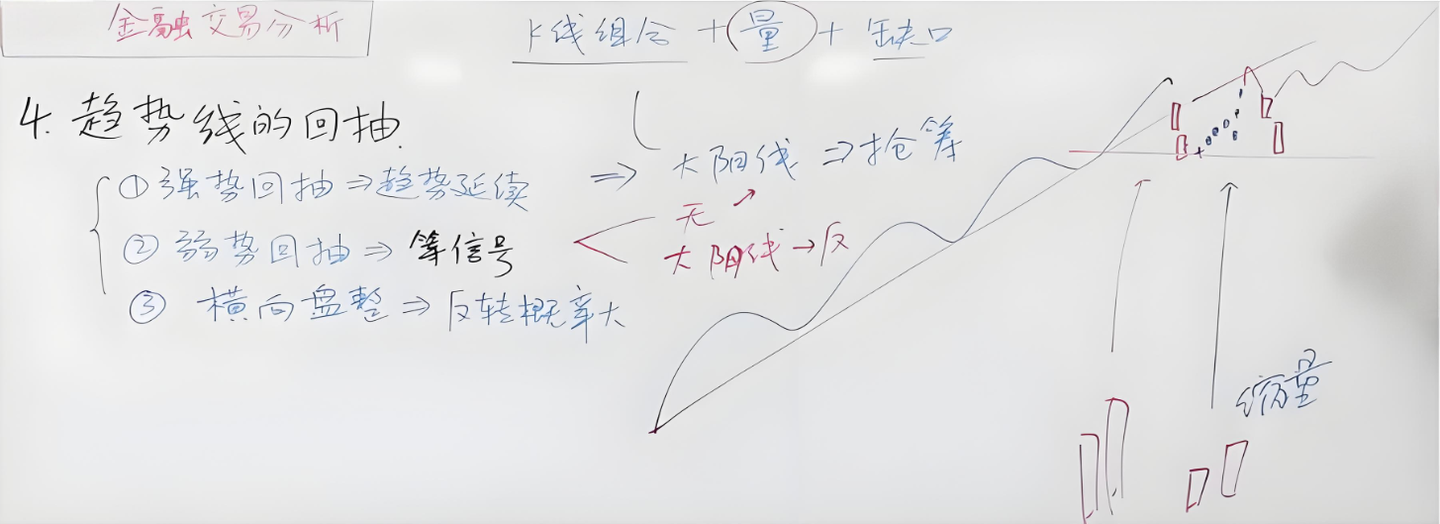 金融交易分析
K线组合+量+缺口
4.趋势线的回抽.
①强势回抽⇒趋势延续
⇒大阳线⇒抢筹
②弱势回抽⇒等信号
无
大阳线→反
③横向盘整⇒反转概率大
缩量